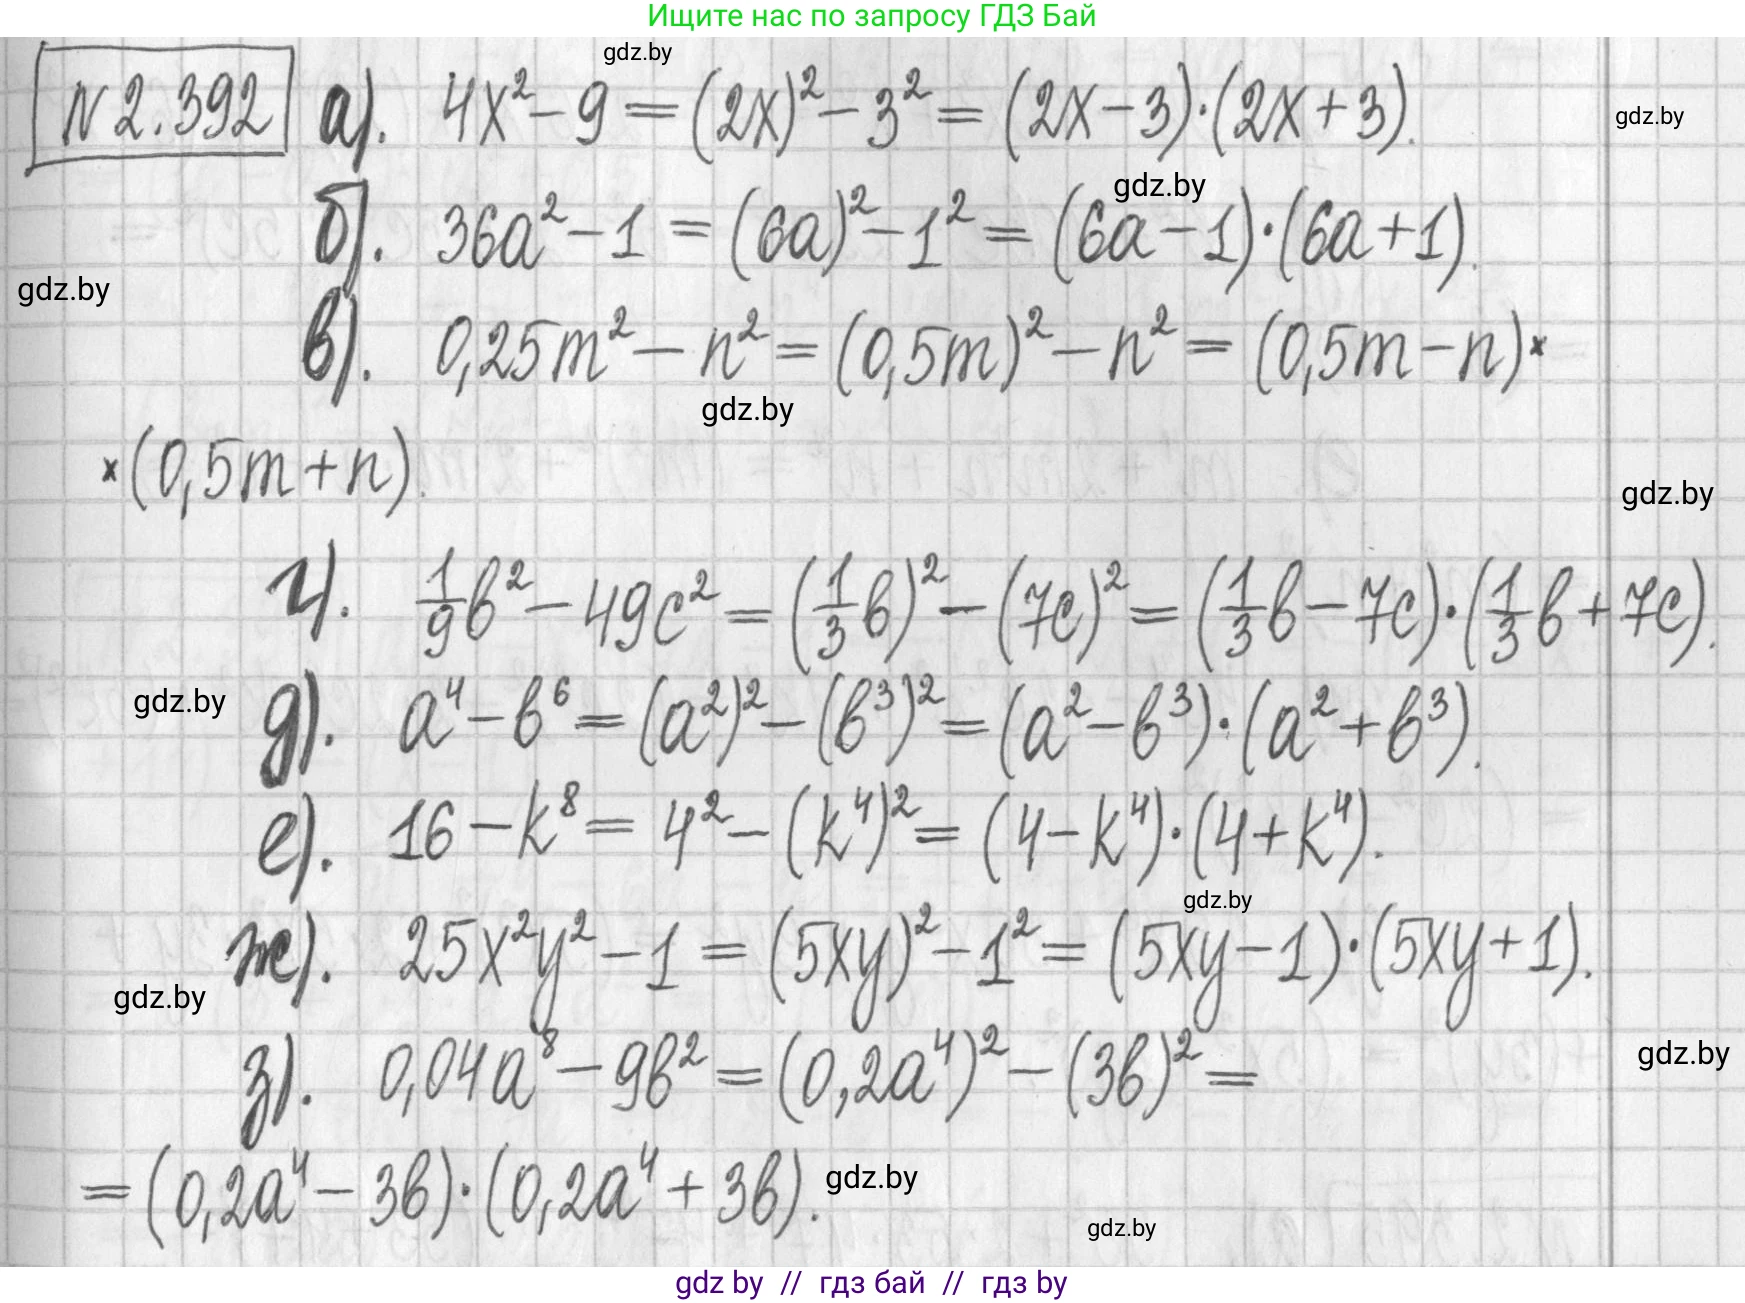 Ищите нас по запросу ГДЗ Бай
gdz.by
N 2.392 а). 4x² - 9 = (2x)² - 3² = (2x - 3)·(2x + 3).
gdz.by
gdz.by
б). 36a² - 1 = (6a)² - 1² = (6a - 1)·(6a + 1).
gdz.by
в). 0,25m² - n² = (0,5m)² - n² = (0,5m - n) ×
gdz.by
× (0,5m + n).
gdz.by
г). 1/9 b² - 49c² = (1/3 b)² - (7c)² = (1/3 b - 7c)·(1/3 b + 7c).
gdz.by
д). a⁴ - b⁶ = (a²)² - (b³)² = (a² - b³)·(a² + b³).
е). 16 - k⁸ = 4² - (k⁴)² = (4 - k⁴)·(4 + k⁴).
gdz.by
ж). 25x²y² - 1 = (5xy)² - 1² = (5xy - 1)·(5xy + 1).
gdz.by
з). 0,04a⁸ - 9b² = (0,2a⁴)² - (3b)² =
gdz.by
= (0,2a⁴ - 3b)·(0,2a⁴ + 3b).
gdz.by
gdz.by
gdz by // гдз бай // гдз by